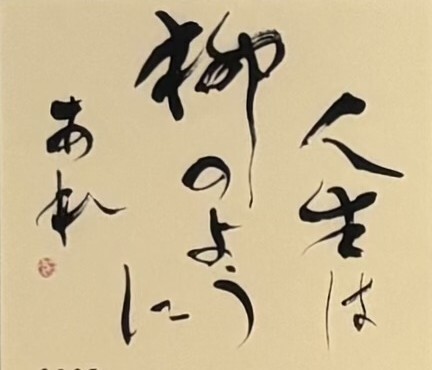 人生は
柳のよう
に
あれ